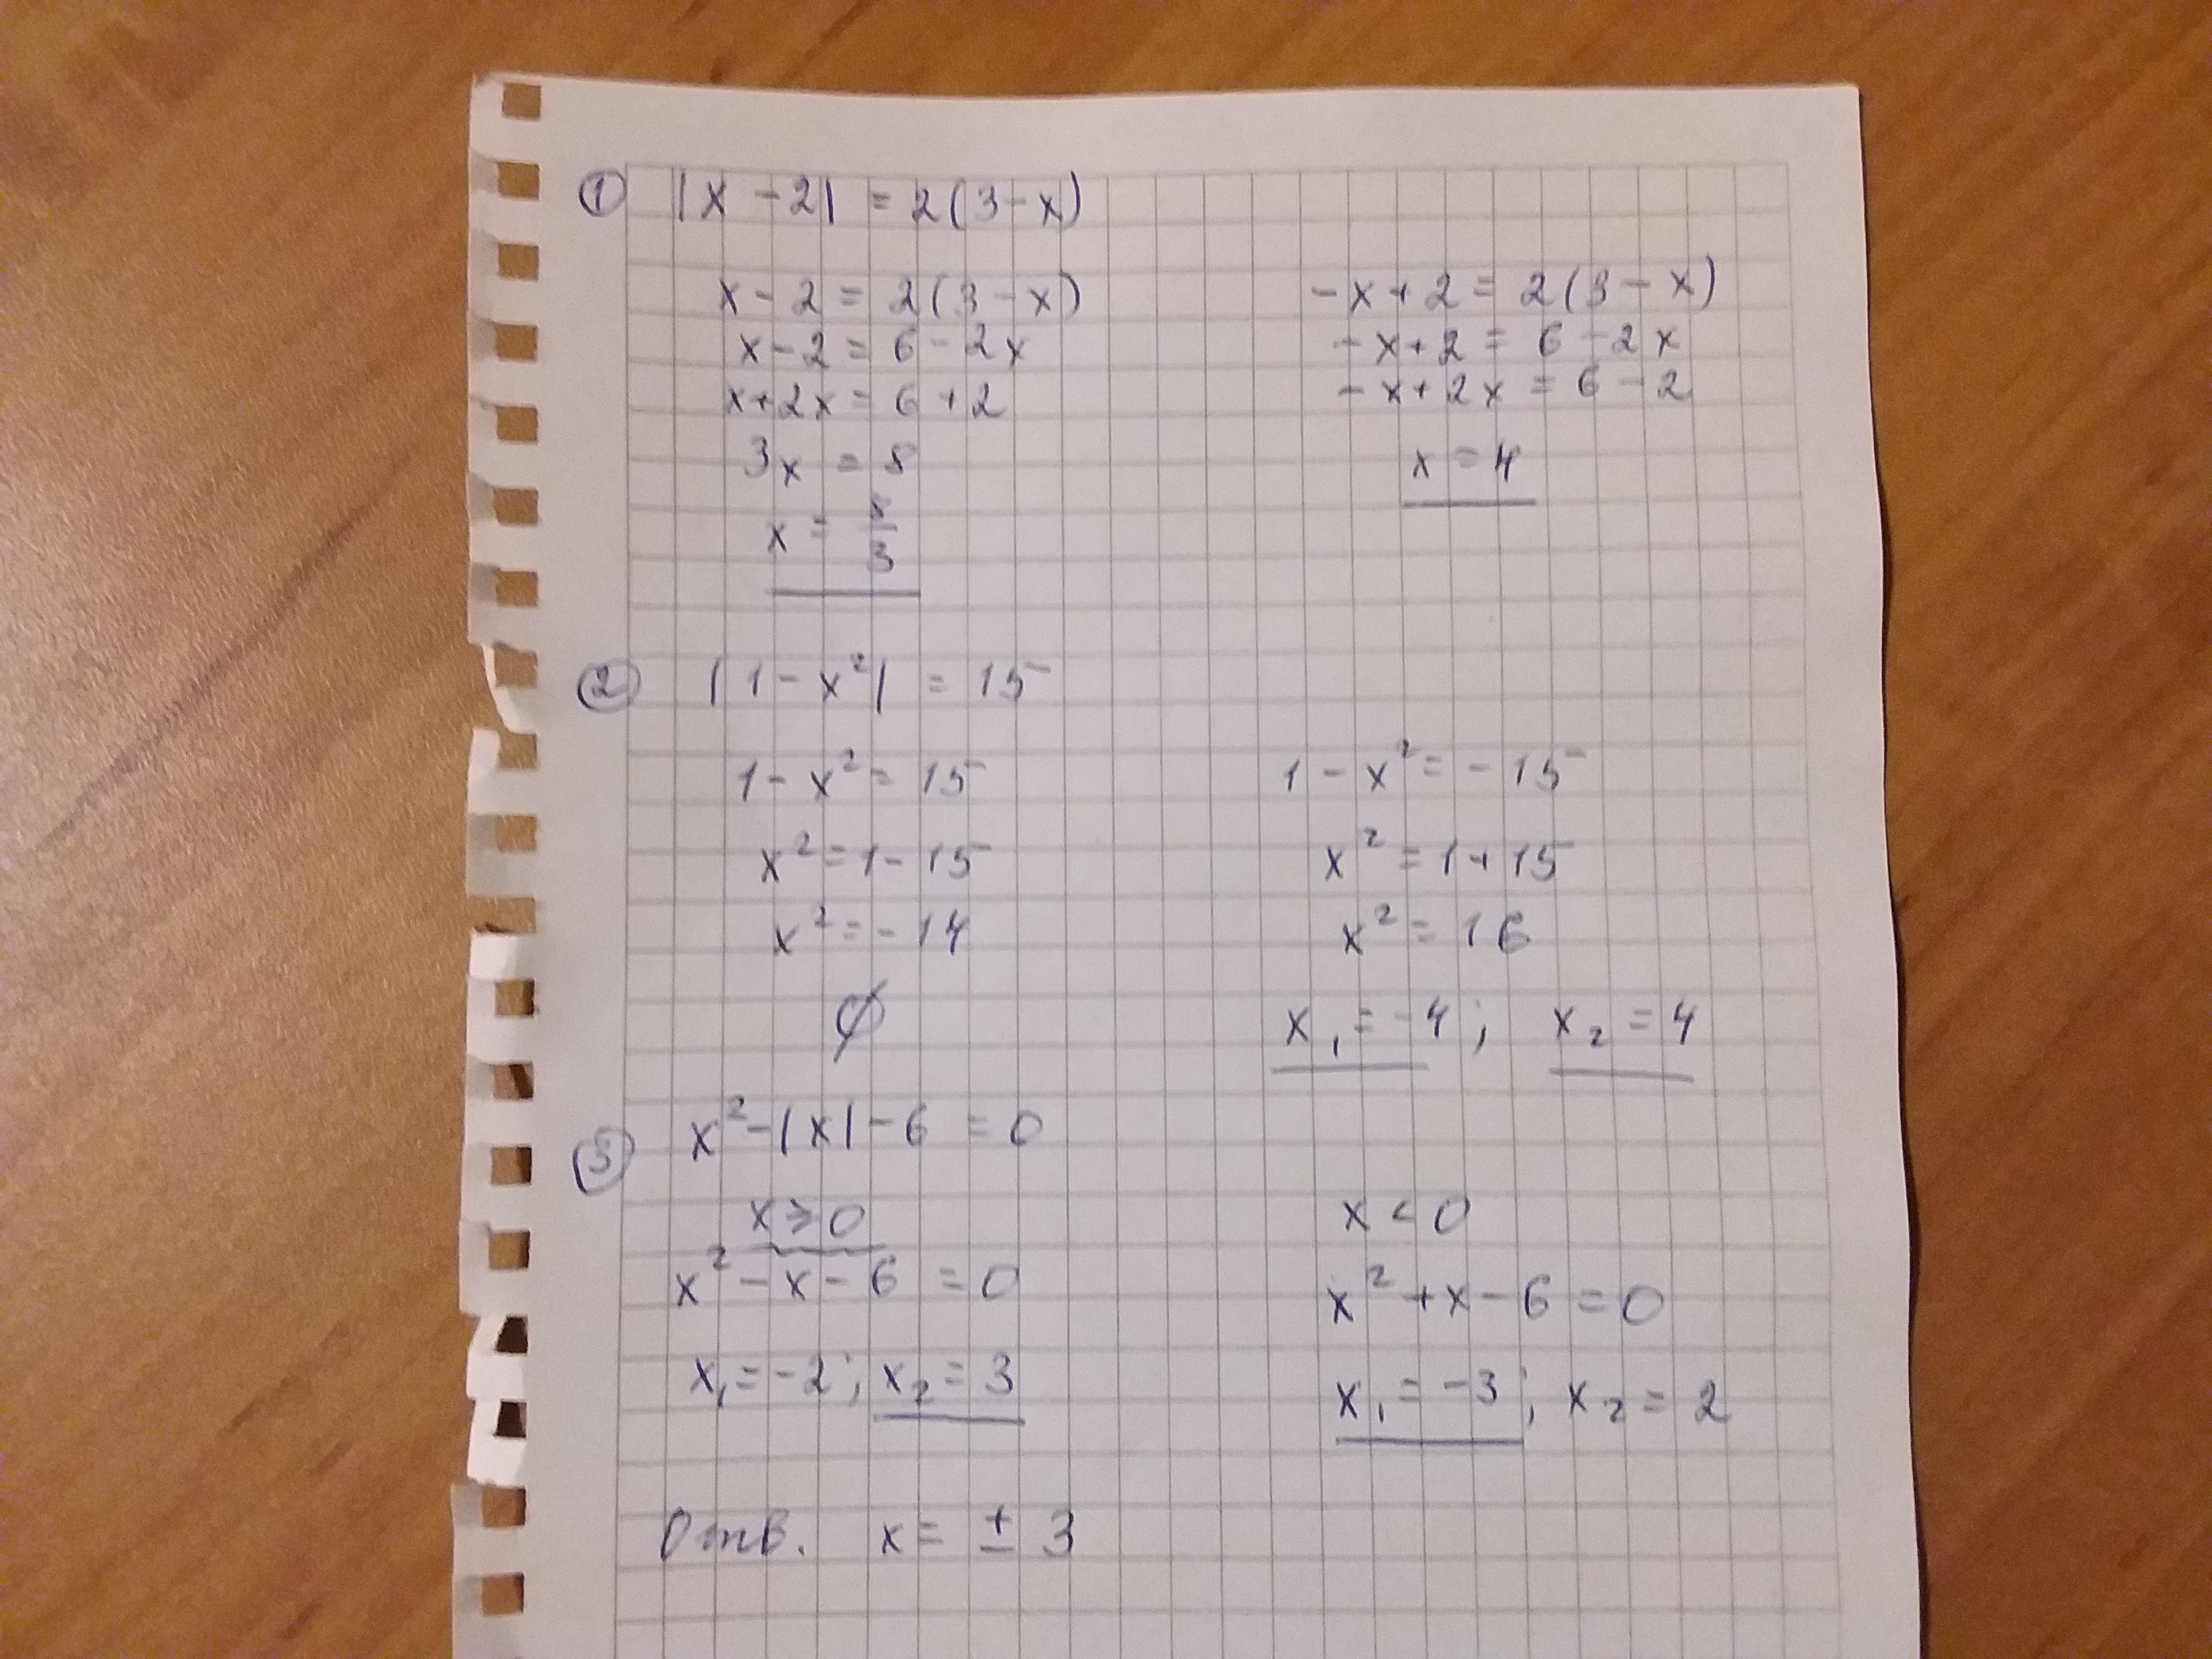 ① |x - 2| = 2(3 - x)
x - 2 = 2(3 - x)
x - 2 = 6 - 2x
x + 2x = 6 + 2
3x = 8
x = 8/3
-x + 2 = 2(3 - x)
-x + 2 = 6 - 2x
-x + 2x = 6 - 2
x = 4
② |1 - x²| = 15
1 - x² = 15
x² = 1 - 15
x² = -14
∅
1 - x² = -15
x² = 1 + 15
x² = 16
x₁ = -4; x₂ = 4
③ x² - |x| - 6 = 0
x ≥ 0
x² - x - 6 = 0
x₁ = -2; x₂ = 3
x < 0
x² + x - 6 = 0
x₁ = -3; x₂ = 2
Отв. x = ± 3